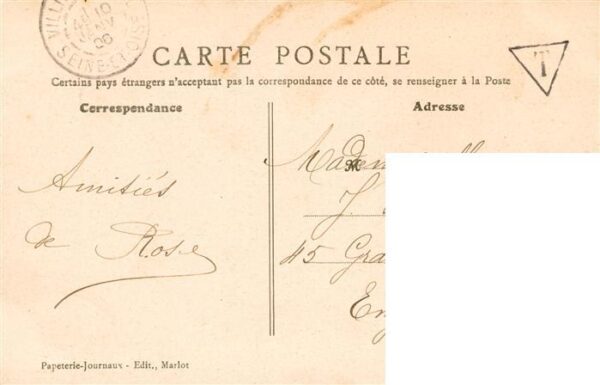 VILLI
10
JANV
06
SEINE-ET-OISE
CARTE POSTALE
T
Certains pays étrangers n'acceptant pas la correspondance de ce côté, se renseigner à la Poste
Correspondance
Adresse
Amitiés
de Rose
J.
45 Gra
En
Papeterie-Journaux - Edit., Marlot